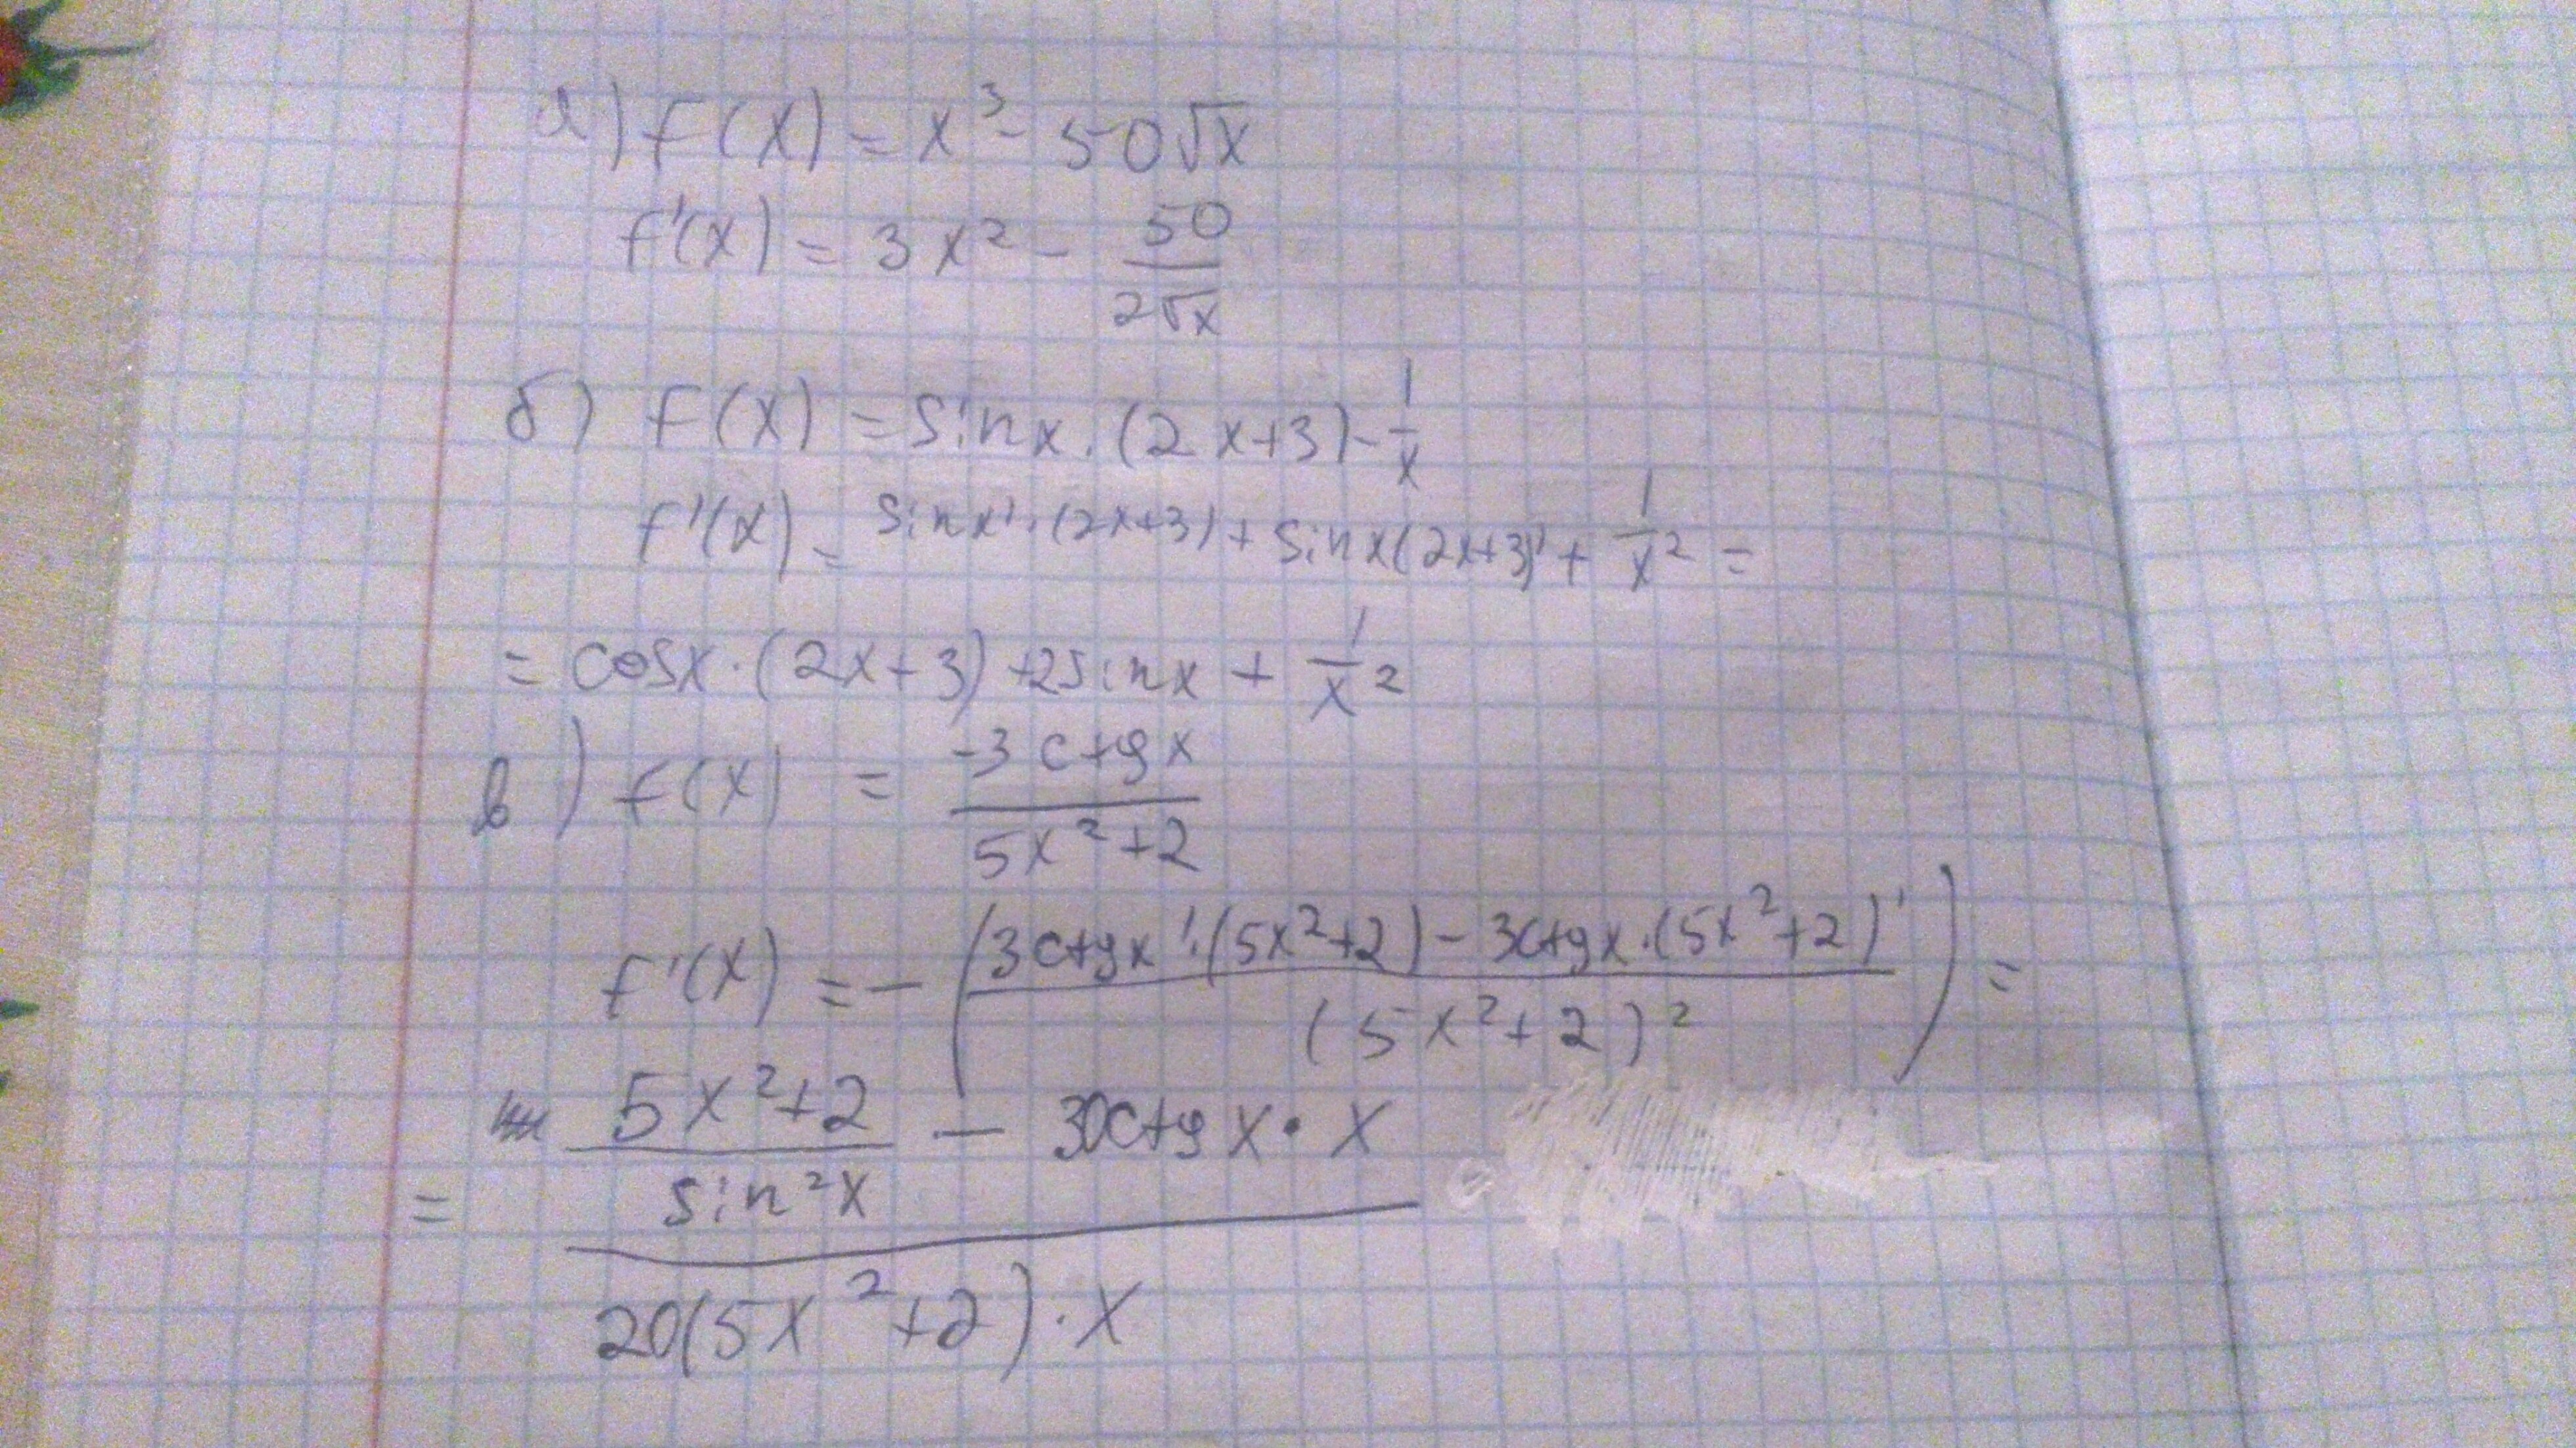 а) f(x) = x³ - 50√x
f'(x) = 3x² - 50/(2√x)
б) f(x) = sinx · (2x+3) - 1/x
f'(x) = sinx' · (2x+3) + sinx(2x+3)' + 1/x² =
= cosx · (2x+3) + 2sinx + 1/x²
в) f(x) = (-3ctgx)/(5x²+2)
f'(x) = - ((3ctgx' · (5x²+2) - 3ctgx · (5x²+2)')/(5x²+2)²) =
= ((5x²+2)/(sin²x) - 30ctgx · x)/(20(5x²+2) · x)